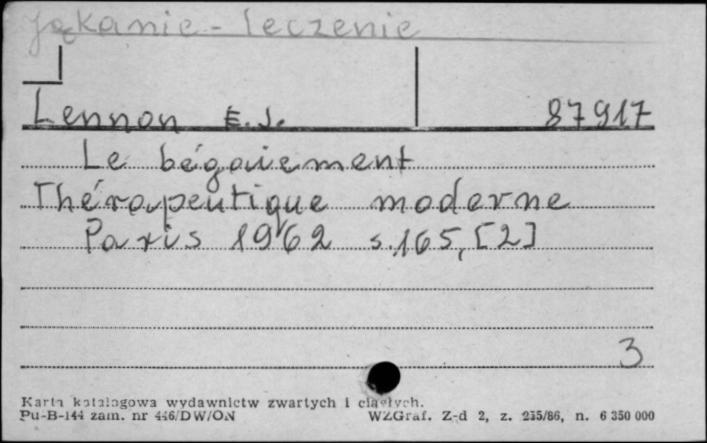 Jąkanie - leczenie
Lennon E.J. 87917
Le bégaiement
Thérapeutique moderne
Paris 1962 s.165, [2]
3
Karta katalogowa wydawnictw zwartych i ciągłych.
Pu-B-144 zam. nr 446/DW/ON WZGraf. Z-d 2, z. 215/86, n. 6 350 000